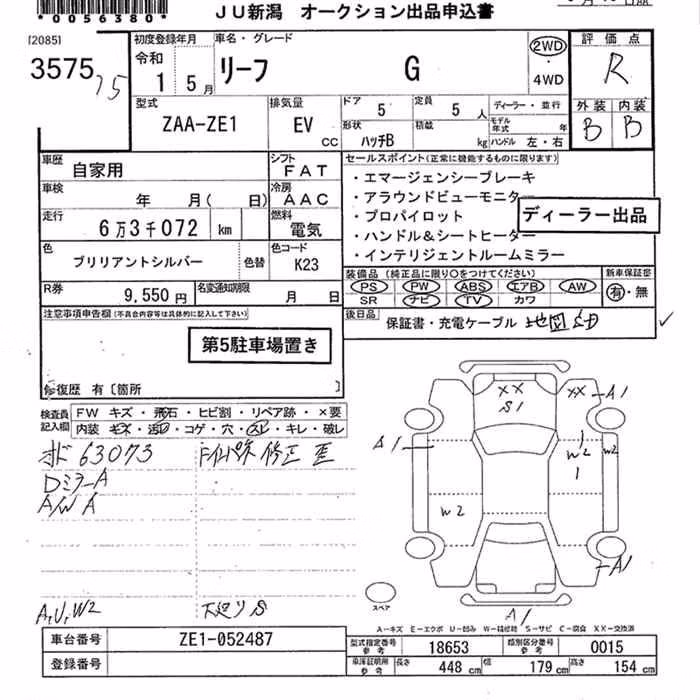 *0056380*
JU新潟 オークション出品申込書
[2085]
3575
75
初度登録年月
令和
1 5月
車名・グレード
リーフ G
2WD
・
4WD
評価点
R
外装 内装
B B
型式
ZAA-ZE1
排気量
EV
cc
ドア 5
定員 5 人
形状 ハッチB
積載 kg
ディーラー・並行
モデル年式 年
ハンドル 左・右
車歴
自家用
シフト
FAT
車検
年 月( 日)
冷房
AAC
走行
6万3千072 km
燃料
電気
色
ブリリアントシルバー
色替
色コード
K23
R券
9,550円
名変通知期限
月 日
セールスポイント(正常に機能するものに限ります)
・エマージェンシーブレーキ
・アラウンドビューモニター
・プロパイロット
・ハンドル＆シートヒーター
・インテリジェントルームミラー
ディーラー出品
装備品(純正品に限り○をつけてください)
PS PW ABS エアB AW
SR ナビ TV カワ
新車保証書
有・無
後日品
保証書・充電ケーブル 地図SD
注意事項申告欄(不具合内容等は具体的に記入して下さい)
第5駐車場置き
修復歴 有[箇所 ]
検査員
記入欄
FW キズ・飛石・ヒビ割・リペア跡・×要
内装 キズ・汚レ・コゲ・穴・スレ・キレ・破レ
オド 63073
Dミラ-A
A/W A
修正 歪
A,U,W2
下廻りS
XX
S1
XX
A1
A1
W2
1
W2
W2
A1
A1
スペア
A－キズ E－エクボ U－凹み W－補修跡 S－サビ C－腐食 XX－交換済
車台番号
ZE1-052487
登録番号
型式指定番号
参考
18653
類別区分番号
参考
0015
車庫証明用
参考
長さ 448 cm
幅 179 cm
高さ 154 cm